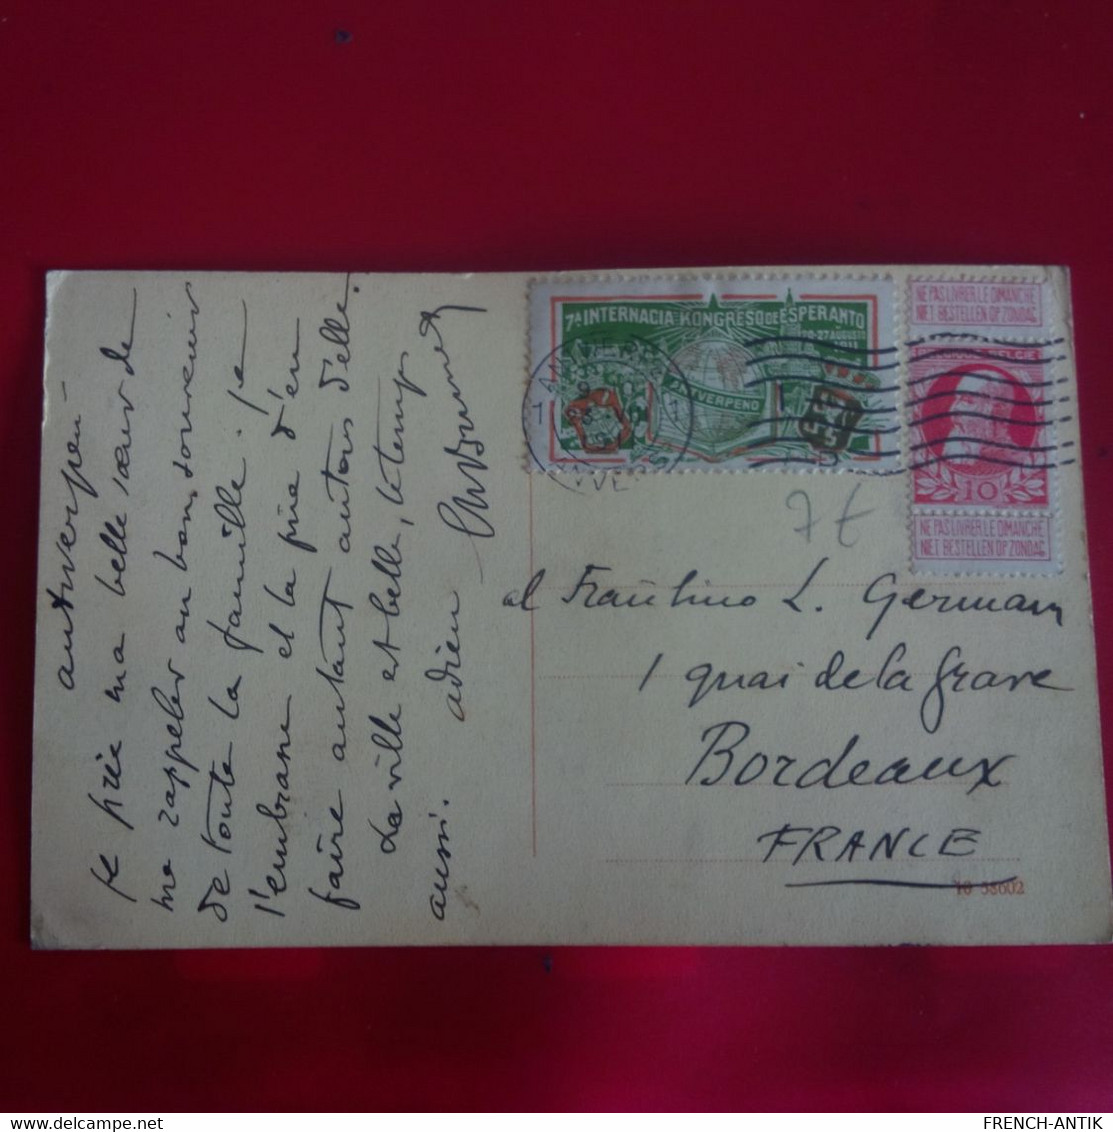 antverpen
je prie ma belle sœur de
me rappeler au bon souvenir
de toute la famille. je
l'embrasse et la prie d'en
faire autant autour d'elle.
La ville est belle, le temps
aussi. adieu
7A INTERNACIA KONGRESO DE ESPERANTO
20-27 AUGUSTO
1911
ANTVERPENO
NE PAS LIVRER LE DIMANCHE
NIET BESTELLEN OP ZONDAG
BELGIE
10
NE PAS LIVRER LE DIMANCHE
NIET BESTELLEN OP ZONDAG
7€
al Fraŭlino L. Germain
1 quai de la Grave
Bordeaux
FRANCE
10 38602
FRENCH-ANTIK